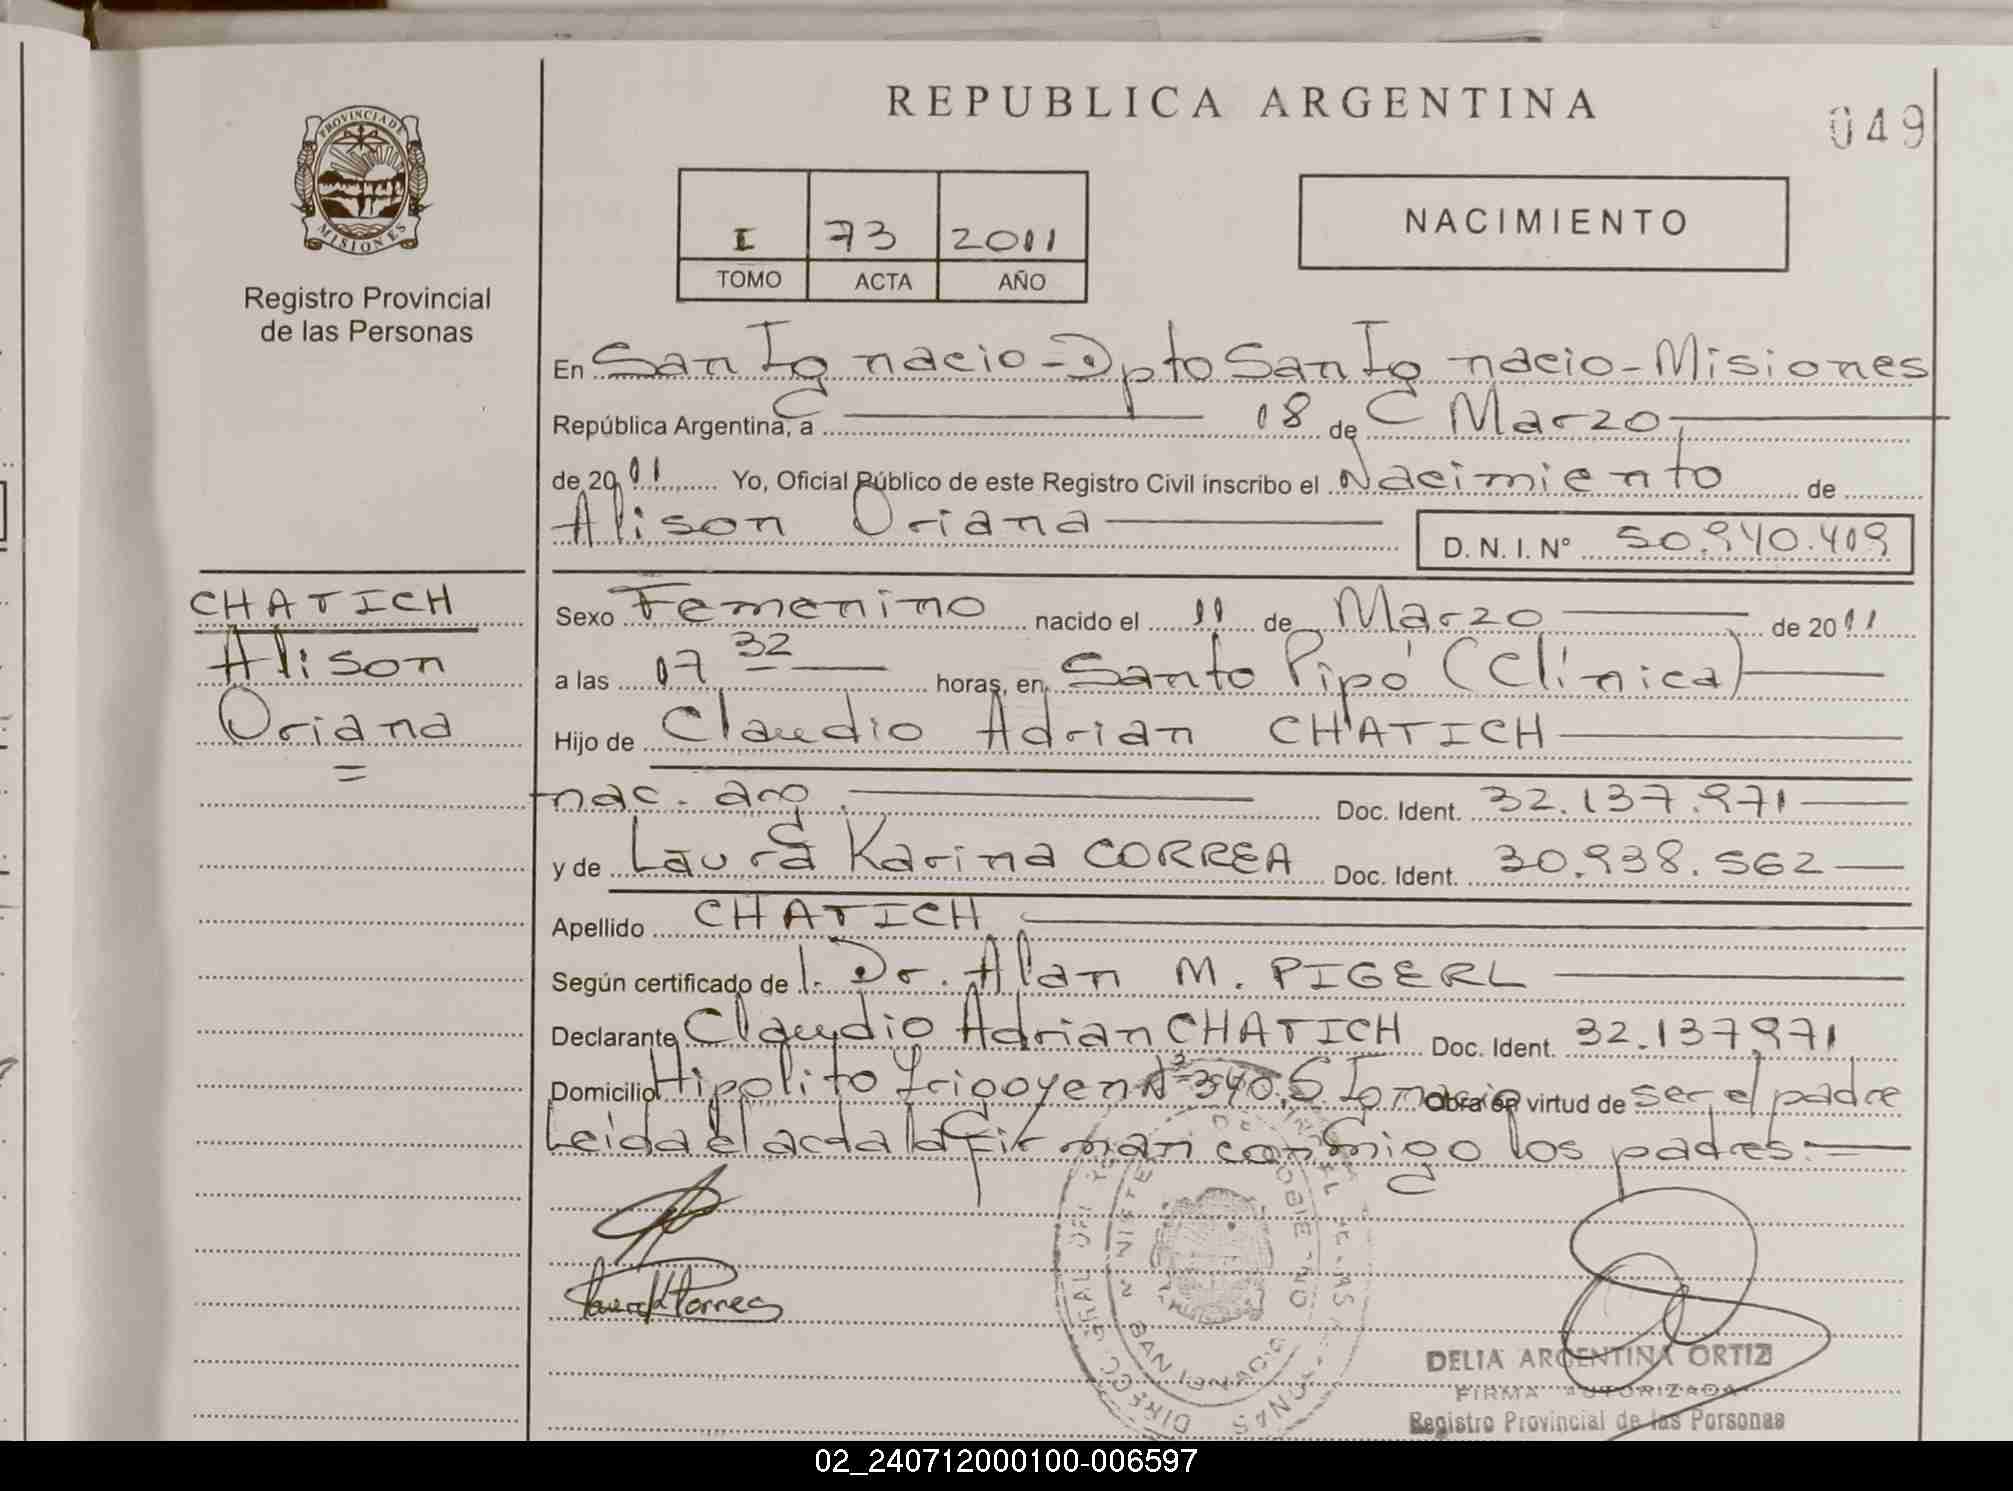 REPUBLICA ARGENTINA
049
PROVINCIA DE
MISIONES
Registro Provincial
de las Personas
I 73 2011
TOMO ACTA AÑO
NACIMIENTO
En San Ignacio - Dpto San Ignacio - Misiones
República Argentina, a 18 de Marzo
de 2011 Yo, Oficial Público de este Registro Civil inscribo el Nacimiento de
Alison Oriana
D. N. I. Nº 50.940.409
CHATICH
Alison
Oriana
Sexo Femenino nacido el 11 de Marzo de 2011
a las 07 32 horas, en Santo Pipó (Clínica)
Hijo de Claudio Adrian CHATICH
nac. arg. Doc. Ident. 32.137.971
y de Laura Karina CORREA Doc. Ident. 30.938.562
Apellido CHATICH
Según certificado de l. Dr. Alan M. PIGERL
Declarante Claudio Adrian CHATICH Doc. Ident. 32.137.971
Domicilio Hipolito Yrigoyen Nº 340, S. Ignacio Obra en virtud de ser el padre
Leida el acta la firman conmigo los padres.
DELIA ARGENTINA ORTIZ
FIRMA AUTORIZADA
Registro Provincial de las Personas
02_240712000100-006597